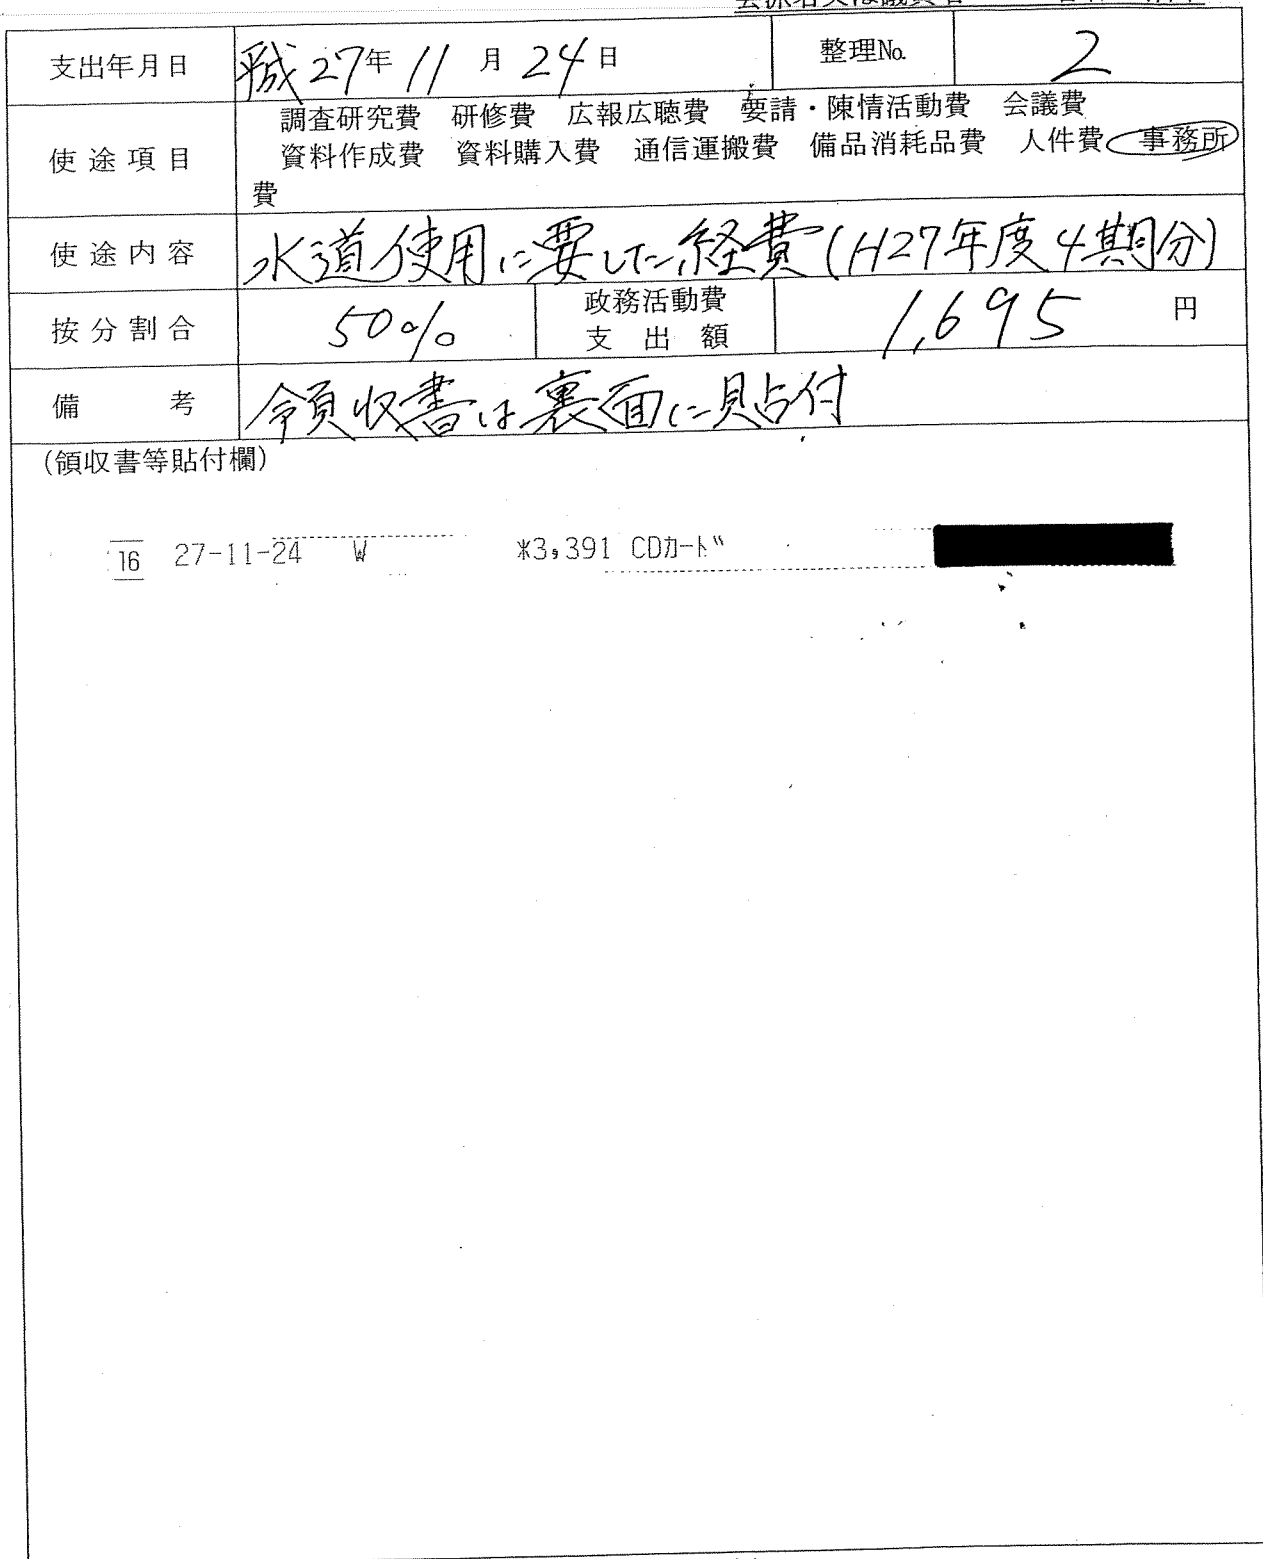 支出年月日 平成27年 11 月 24 日 整理№ 2
使途項目 調査研究費 研修費 広報広聴費 要請・陳情活動費 会議費
資料作成費 資料購入費 通信運搬費 備品消耗品費 人件費 事務所
費
使途内容 水道使用に要した経費(H27年度4期分)
按分割合 50% 政務活動費支出額 1,695 円
備考 領収書は裏面に貼付
(領収書等貼付欄)
16 27-11-24 W *3,391 CDカード